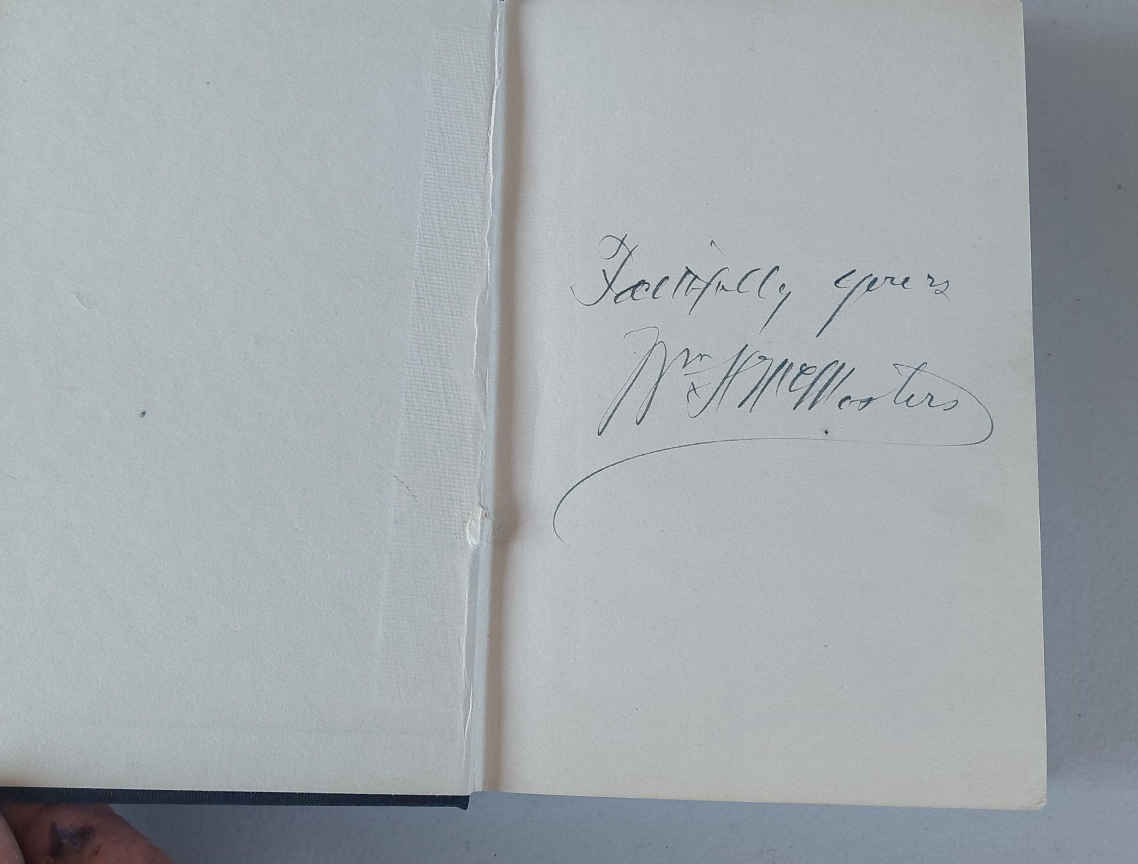 Faithfully yours
Wm H McMasters